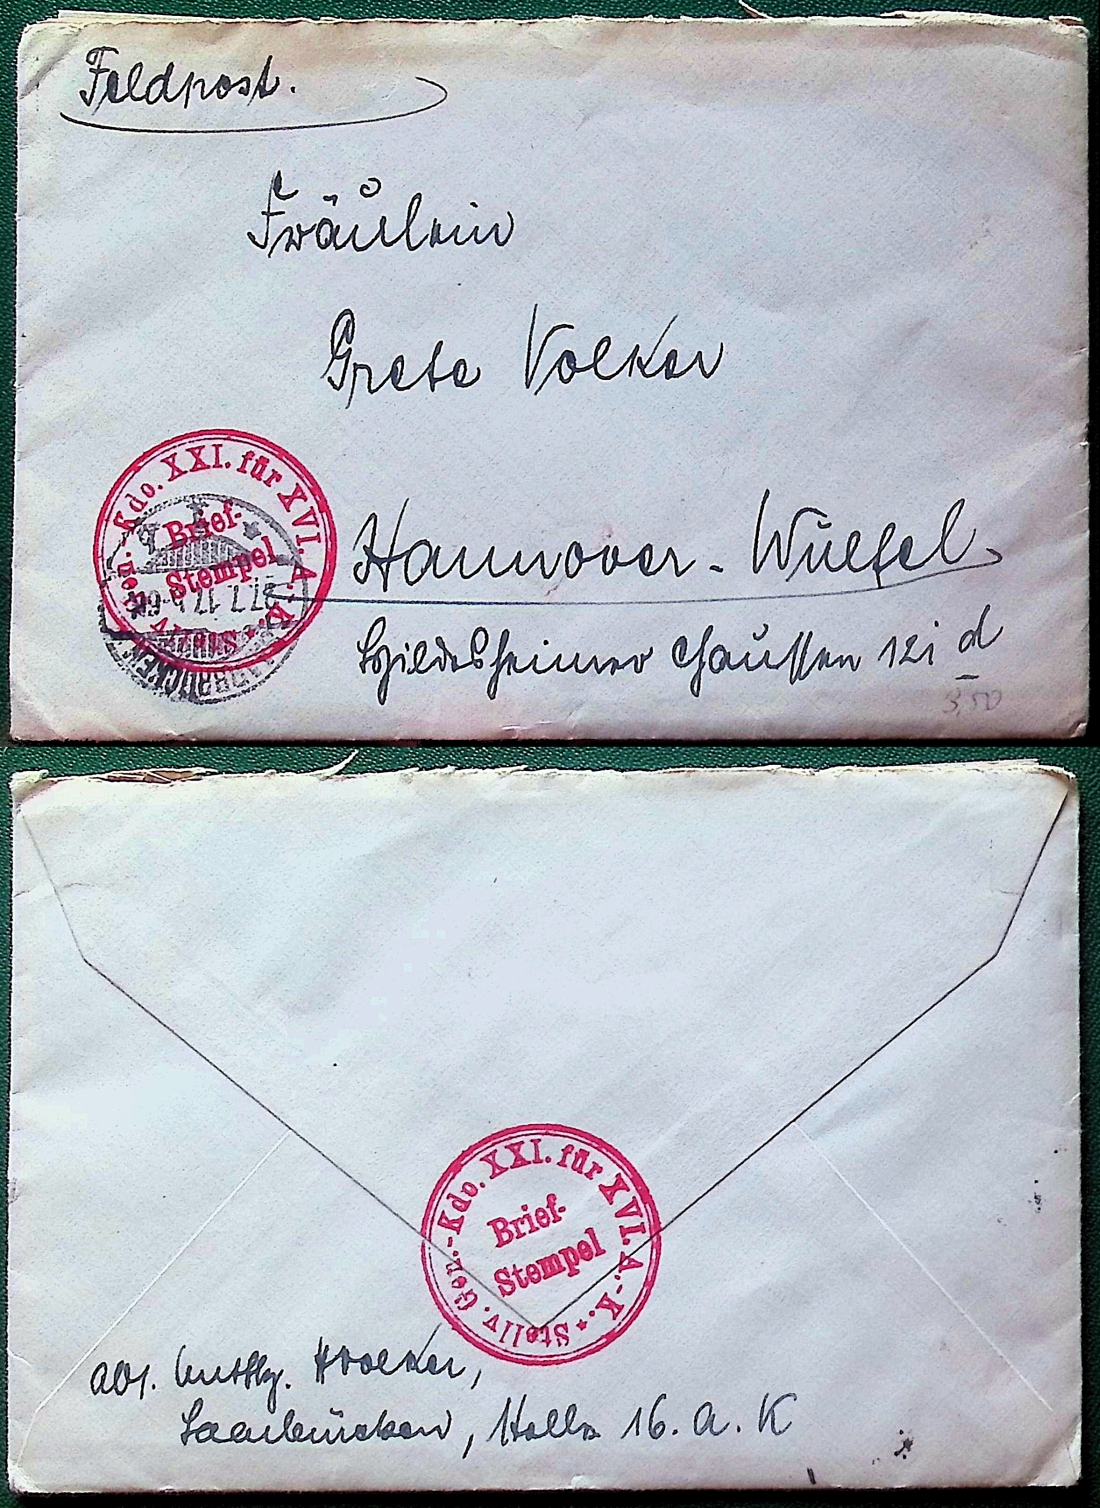 Feldpost.
Fräulein
Grete Volker
Hannover-Wülfel
Hildesheimer Chaussee 121 d
3,50
Stellv. Gen.-Kdo. XXI. für XVI. A.-K.
Brief-
Stempel
27.7.17
SAARBRÜCKEN
Stellv. Gen.-Kdo. XXI. für XVI. A.-K.
Brief-
Stempel
Abs.
Saarbrücken, 16. A. K